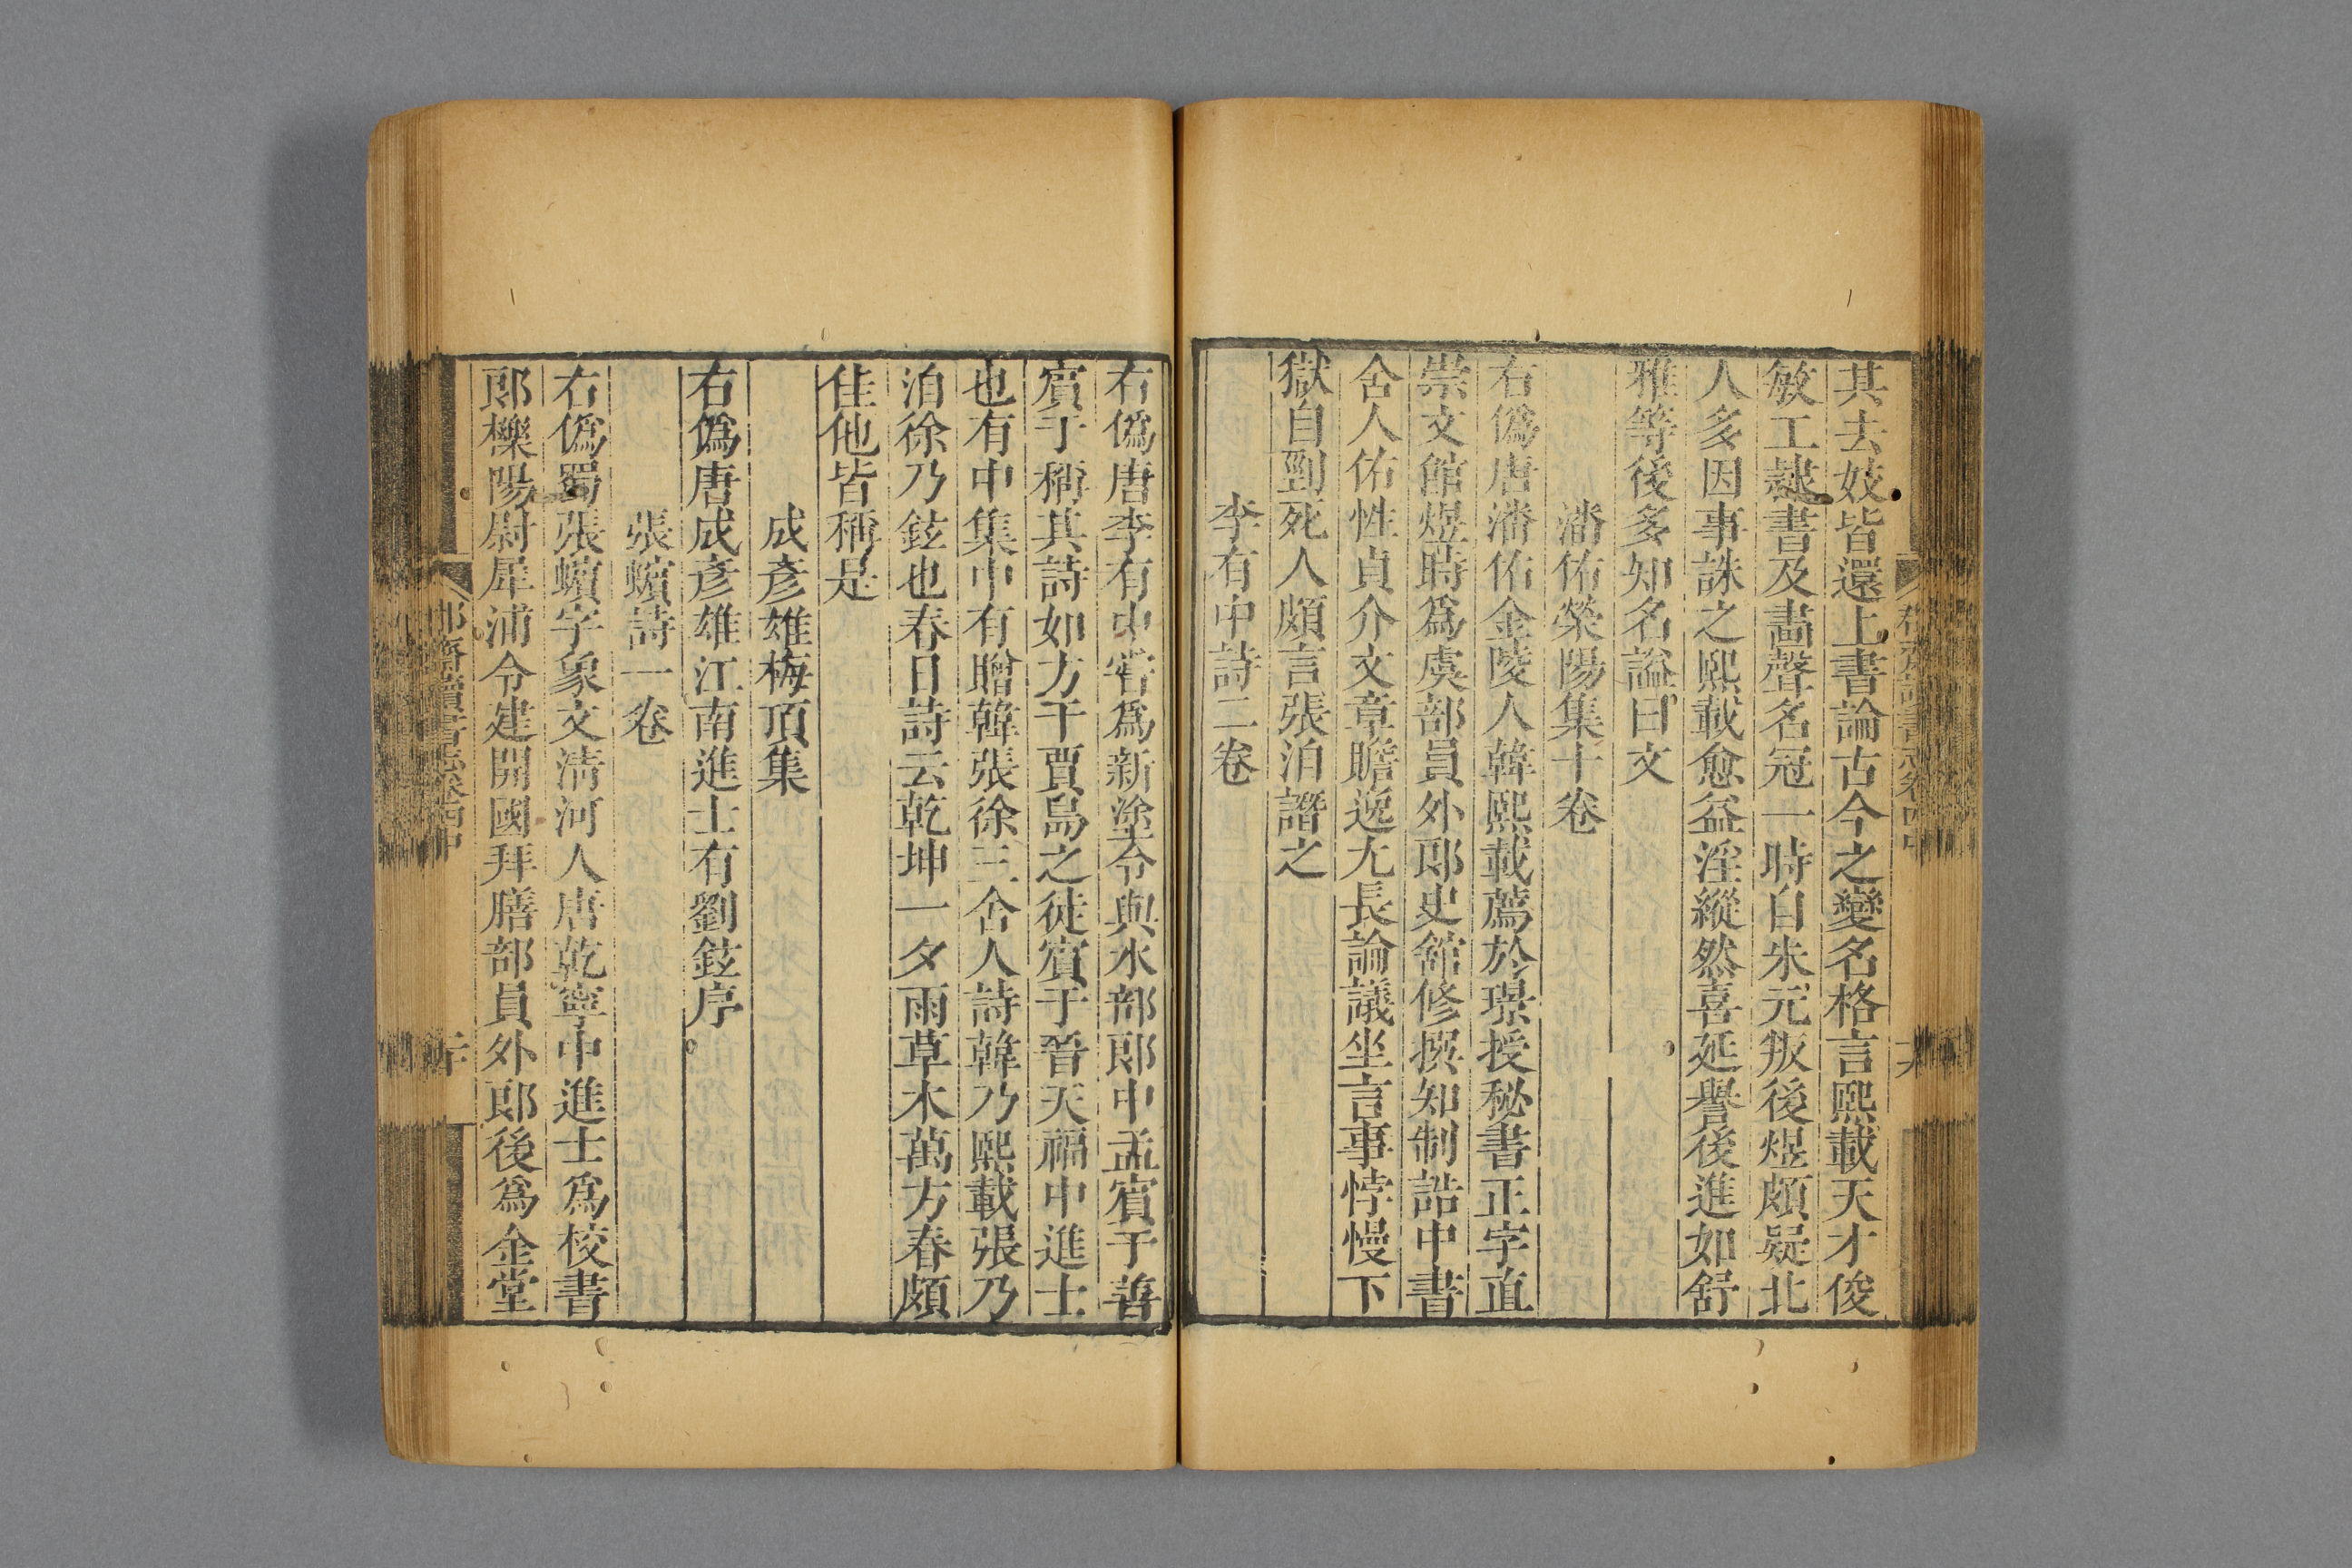 其去妓皆還上書論古今之變名格言熙載天才俊
敏工隸書及畫聲名冠一時自朱元叛後煜頗疑北
人多因事誅之熙載愈益淫縱然喜延譽後進如舒
雅等後多知名謚曰文
潘佑榮陽集十卷
右僞唐潘佑金陵人韓熙載薦於璟授秘書正字直
崇文館煜時爲虞部員外郎史舘修撰知制誥中書
舍人佑性貞介文章贍逸尢長論議坐言事悖慢下
獄自剄死人頗言張洎譖之
李有中詩二卷
右僞唐李有中嘗爲新塗令與水部郎中孟賓于善
賓于稱其詩如方干賈島之徒賓于晉天福中進士
也有中集中有贈韓張徐三舍人詩韓乃熙載張乃
洎徐乃鉉也春日詩云乾坤一夕雨草木萬方春頗
佳他皆稱是
成彥雄梅頂集
右僞唐成彥雄江南進士有劉鉉序
張蠙詩一卷
右僞蜀張蠙字象文淸河人唐乾寧中進士爲校書
郎櫟陽尉犀浦令建開國拜膳部員外郎後爲金堂